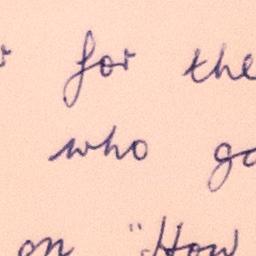 for the
who
on "How